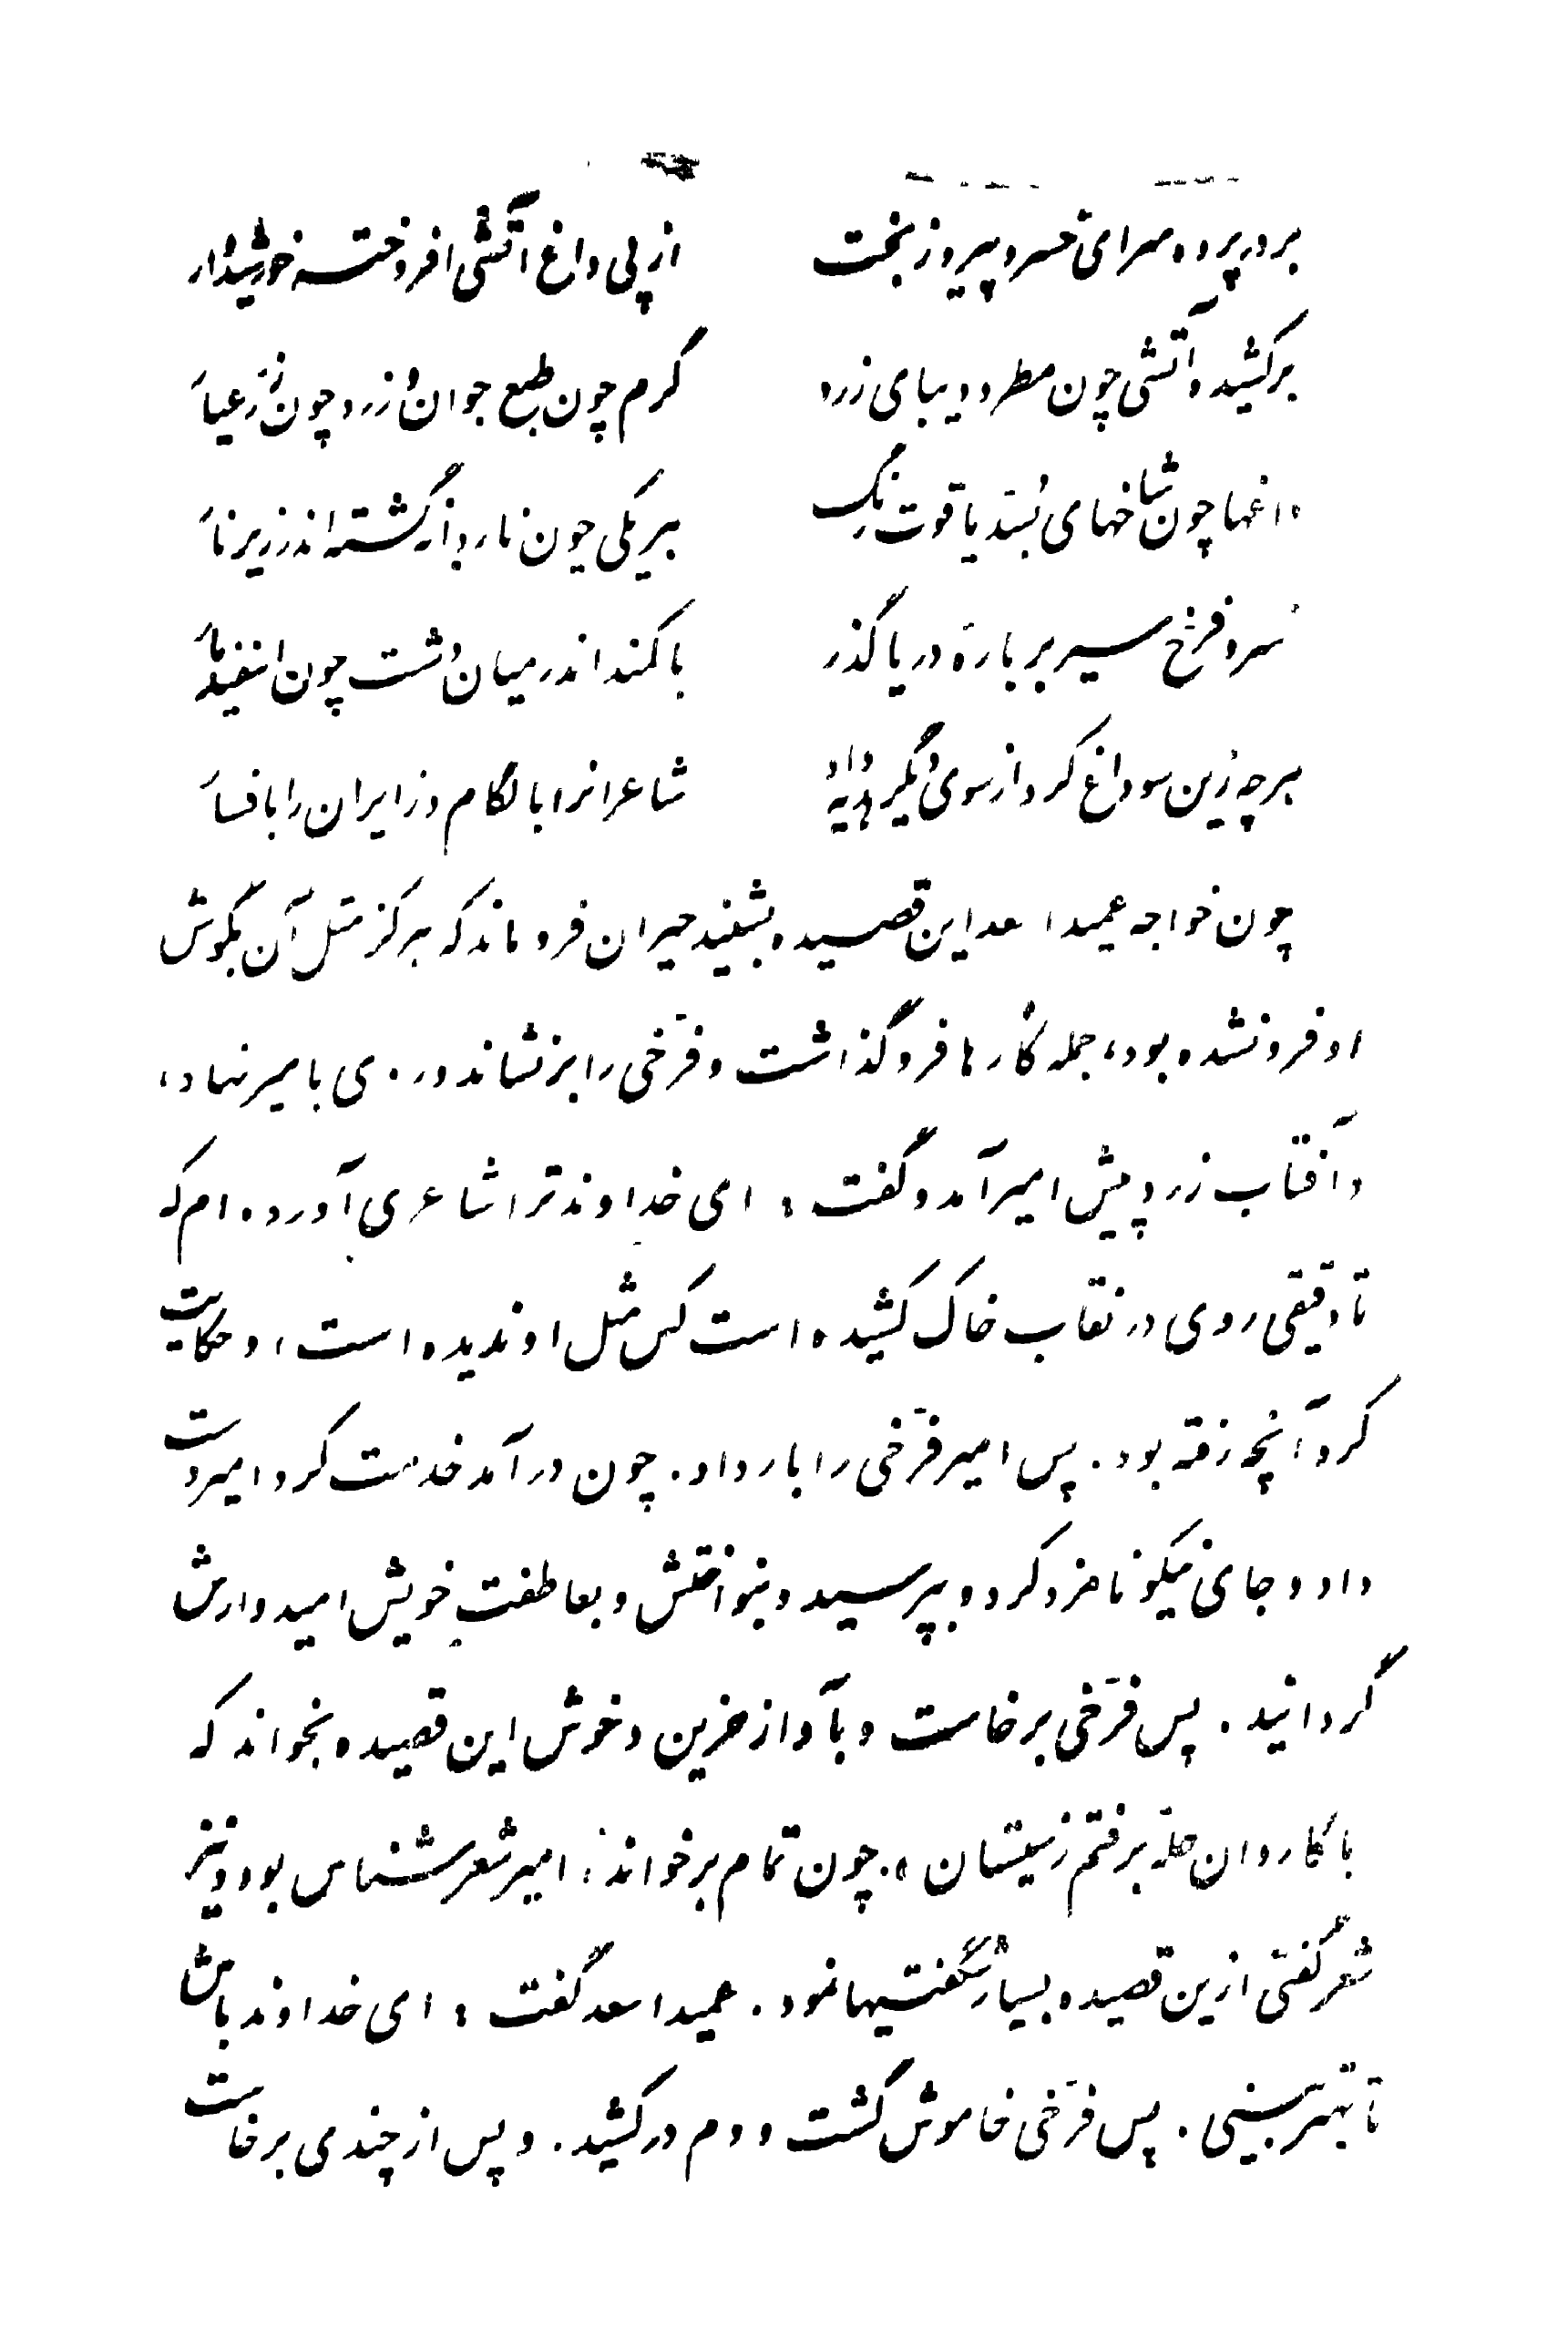 بر در پرده سرای خسرو پیروز بخت از پی داغ آتشی افروخته خورشیدوار
برکشیده آتشی چون مطرد دیبای زرد گرم چون طبع جوان و زرد چون زر عیار
داغها چون شاخهای بُسَد یاقوت رنگ هر یکی چون نار دانه گشته اندر زیر نار
خسرو فرخ سیر بر بارۀ دریا گذر با کمند اندر میان دشت چون اسفندیار
هر چه زین سو داغ کرد از سوی دیگر هدیه داد شاعرانرا با لگام و زایرانرا با فسار
چون خواجه عمید اسعد این قصیده بشنید حیران فرو ماند که هرگز مثل آن بگوش
او فرو نشده بود، جمله کارها فرو گذاشت و فرّخی را برنشاند و روی بامیر نهاد،
و آفتاب زرد پیش امیر آمد و گفت: ای خداوند ترا شاعری آورده‌ام که
تا دقیقی روی در نقاب خاک کشیده است کس مثل او ندیده است، و حکایت
کرد آنچه رفته بود. پس امیر فرّخی را بار داد. چون در آمد خدمت کرد امیر دست
داد و جای نیکو نامزد کرد و بپرسید و بنواختش و بعاطفتِ خویش امیدوارش
گردانید. پس فرّخی برخاست و بآواز حزین و خوش این قصیده بخواند که
با کاروان حلّه برفتم ز سیستان. چون تمام بر خواند، امیر شعر شناس بود و نیز
شعر گفتی ازین قصیده بسیار شگفتیها نمود. عمید اسعد گفت: ای خداوند باش
تا بهتر بینی. پس فرّخی خاموش گشت و دم در کشید. و پس از چندی برخاست